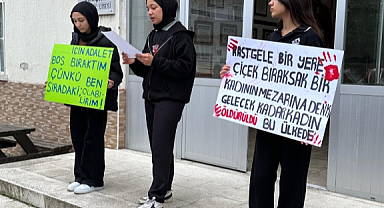 İÇİN ADALET
BOŞ BIRAKTIM
ÇÜNKÜ BEN
SIRADAKİ OLABİ
LİRİM!
RASTGELE BİR YERE
ÇİÇEK BIRAKSAK BİR
KADININ MEZARINA DENK
GELECEK KADAR KADIN
ÖLDÜRÜLDÜ BU ÜLKEDE!!